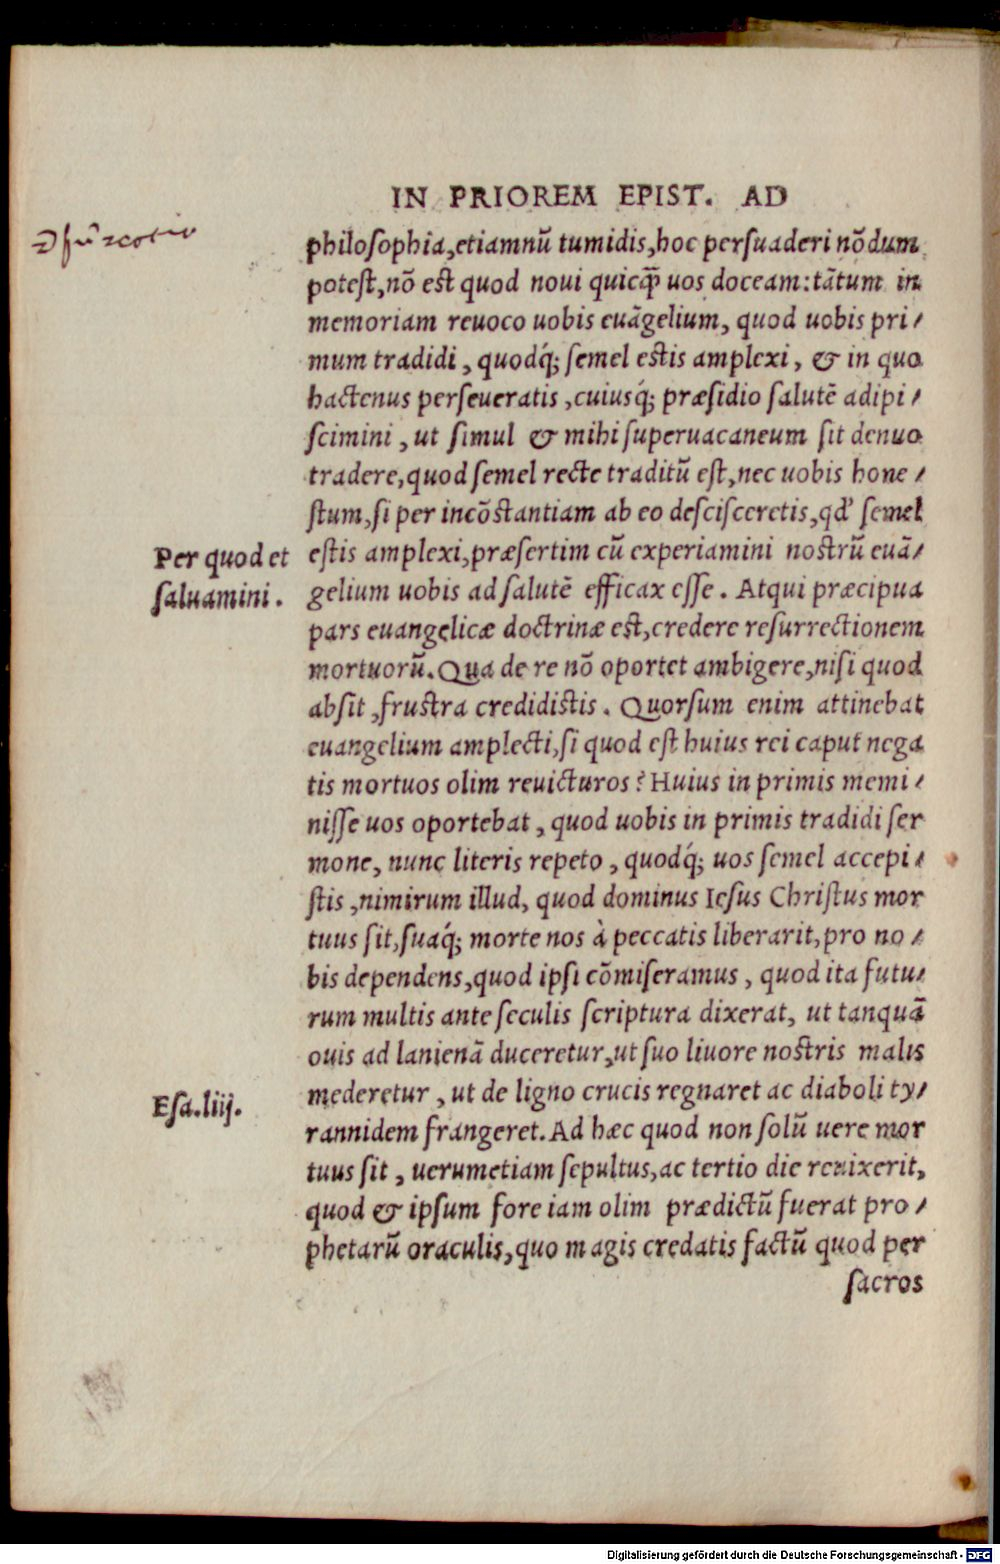 IN PRIOREM EPIST. AD
philosophia,etiamnũ tumidis,hoc persuaderi nõdum
potest,nõ est quod noui quicq̃ uos doceam:tãtum in
memoriam reuoco uobis euãgelium, quod uobis pri/
mum tradidi, quodq́; semel estis amplexi, & in quo
hactenus perseueratis,cuiusq́; præsidio salutẽ adipi/
scimini, ut simul & mihi superuacaneum sit denuo
tradere,quod semel recte traditũ est,nec uobis hone/
stum,si per incõstantiam ab eo descisceretis,qd' semel
Per quod et
saluamini.
estis amplexi,præsertim cũ experiamini nostrũ euã/
gelium uobis ad salutẽ efficax esse. Atqui præcipua
pars euangelicæ doctrinæ est,credere resurrectionem
mortuorũ.Qua de re nõ oportet ambigere,nisi quod
absit,frustra credidistis. Quorsum enim attinebat
euangelium amplecti,si quod est huius rei caput nega
tis mortuos olim reuicturos? Huius in primis memi/
nisse uos oportebat, quod uobis in primis tradidi ser
mone, nunc literis repeto, quodq́; uos semel accepi/
stis,nimirum illud, quod dominus Iesus Christus mor
tuus sit,suaq́; morte nos à peccatis liberarit,pro no/
bis dependens,quod ipsi cõmiseramus, quod ita futu/
rum multis ante seculis scriptura dixerat, ut tanquã
ouis ad lanienã duceretur,ut suo liuore nostris malis
Esa.liij.
mederetur, ut de ligno crucis regnaret ac diaboli ty/
rannidem frangeret. Ad hæc quod non solũ uere mor
tuus sit, uerumetiam sepultus,ac tertio die reuixerit,
quod & ipsum fore iam olim prædictũ fuerat pro/
phetarũ oraculis,quo magis credatis factũ quod per
sacros
Digitalisierung gefördert durch die Deutsche Forschungsgemeinschaft - DFG